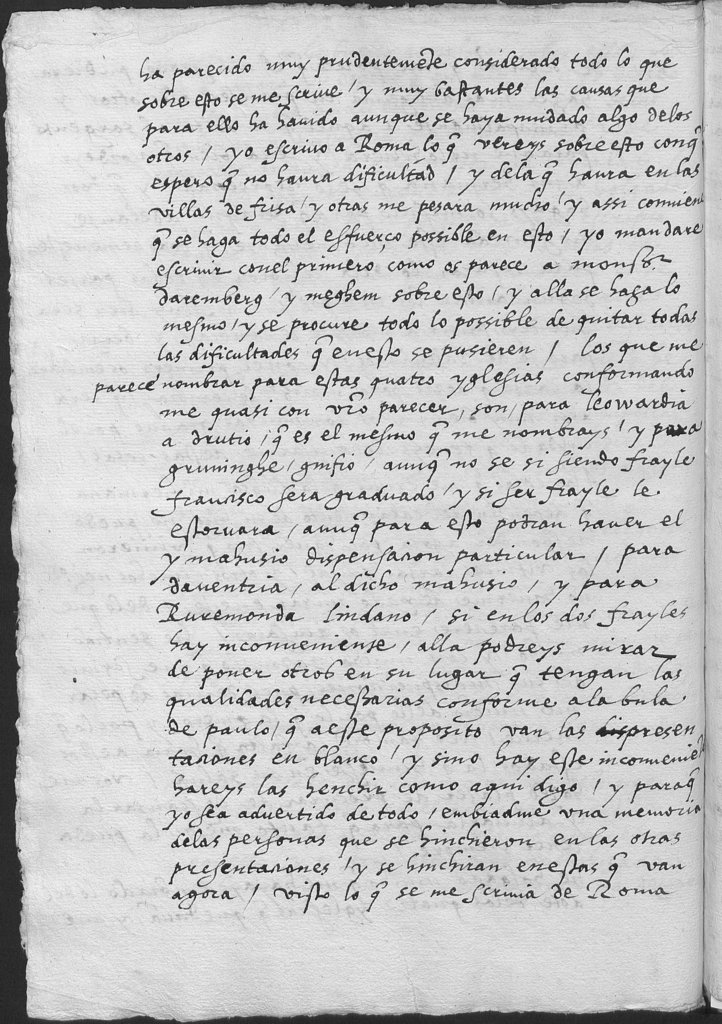 ha parecido muy prudentemete considerado todo lo que
sobre esto se me scrive / y muy bastantes las causas que
para ello ha havido aunque se haya mudado algo delos
otros / yo escrivo a Roma lo q̃ vereys sobre esto conq̃
espero q̃ no havra dificultad / y dela q̃ havra en las
villas de frisa / y otras me pesara mucho / y assi convien
q̃ se haga todo el esfuerço possible en esto / yo mandare
escrivir conel primero, como os parece a monsor
daremberg / y meghem sobre esto / y alla se haga lo
mesmo / y se procure todo lo possible de quitar todas
las dificultades q̃ enesto se pusieren / los que me
parece nombrar para estas quatro yglesias conformando
me quasi con vrõ parecer, son, para Leowardia
a drutio / q̃ es el mesmo q̃ me nombrays / y para
gruninghe / gnifio / aunq̃ no se si siendo frayle
francisco sera graduado / y si ser frayle le
estorvara / aunq̃ para esto podran haver el
y mahusio dispensacion particular / para
daventria / al dicho mahusio / y para
Ruremonda lindano / si en los dos frayles
hay inconveniente / alla podreys mirar
de poner otros en su lugar q̃ tengan las
qualidades necessarias conforme a la bula
de paulo / q̃ a este proposito van las presen
taciones en blanco / y sino hay este inconvenie
hareys las henchir como aqui digo / y paraq̃
yo sea advertido de todo / embiadme una memoria
delas personas que se hinchieron en las otras
presentaciones / y se hinchiran enestas q̃ van
agora / visto lo q̃ se me scrivia de Roma